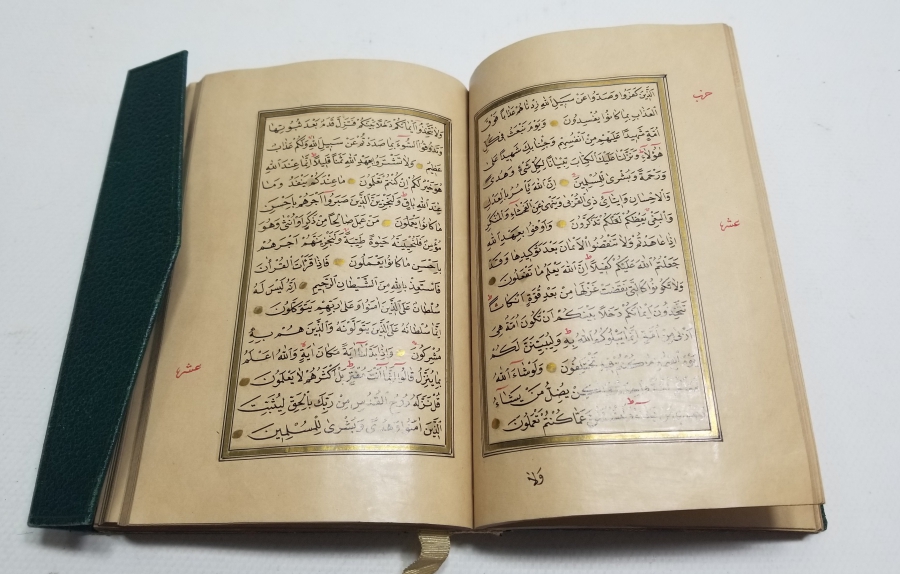 حزب
الَّذِينَ كَفَرُوا وَصَدُّوا عَنْ سَبِيلِ اللهِ زِدْنَاهُمْ عَذَابًا فَوْقَ
الْعَذَابِ بِمَا كَانُوا يُفْسِدُونَ وَيَوْمَ نَبْعَثُ فِي كُلِّ
اُمَّةٍ شَهِيدًا عَلَيْهِمْ مِنْ اَنْفُسِهِمْ وَجِئْنَا بِكَ شَهِيدًا عَلَى
هٰؤُلَاءِ وَنَزَّلْنَا عَلَيْكَ الْكِتَابَ تِبْيَانًا لِكُلِّ شَيْءٍ وَهُدًى
وَرَحْمَةً وَبُشْرَى لِلْمُسْلِمِينَ اِنَّ اللهَ يَأْمُرُ بِالْعَدْلِ
وَالْاِحْسَانِ وَاِيتَاءِ ذِي الْقُرْبَى وَيَنْهَى عَنِ الْفَحْشَاءِ وَالْمُنْكَرِ
وَالْبَغْيِ يَعِظُكُمْ لَعَلَّكُمْ تَذَكَّرُونَ وَاَوْفُوا بِعَهْدِ اللهِ
عشر
اِذَا عَاهَدْتُمْ وَلَا تَنْقُضُوا الْاَيْمَانَ بَعْدَ تَوْكِيدِهَا وَقَدْ
جَعَلْتُمُ اللهَ عَلَيْكُمْ كَفِيلًا اِنَّ اللهَ يَعْلَمُ مَا تَفْعَلُونَ
وَلَا تَكُونُوا كَالَّتِي نَقَضَتْ غَزْلَهَا مِنْ بَعْدِ قُوَّةٍ اَنْكَاثًا
تَتَّخِذُونَ اَيْمَانَكُمْ دَخَلًا بَيْنَكُمْ اَنْ تَكُونَ اُمَّةٌ هِيَ
اَرْبَى مِنْ اُمَّةٍ اِنَّمَا يَبْلُوكُمُ اللهُ بِهِ وَلَيُبَيِّنَنَّ لَكُمْ
مَا كُنْتُمْ فِيهِ تَخْتَلِفُونَ وَلَوْ شَاءَ اللهُ
يُضِلُّ مَنْ يَشَاءُ
عَمَّا كُنْتُمْ تَعْمَلُونَ
وَلَا
وَلَا تَتَّخِذُوا اَيْمَانَكُمْ دَخَلًا بَيْنَكُمْ فَتَزِلَّ قَدَمٌ بَعْدَ ثُبُوتِهَا
وَتَذُوقُوا السُّوءَ بِمَا صَدَدْتُمْ عَنْ سَبِيلِ اللهِ وَلَكُمْ عَذَابٌ
عَظِيمٌ وَلَا تَشْتَرُوا بِعَهْدِ اللهِ ثَمَنًا قَلِيلًا اِنَّمَا عِنْدَ اللهِ
هُوَ خَيْرٌ لَكُمْ اِنْ كُنْتُمْ تَعْلَمُونَ مَا عِنْدَكُمْ يَنْفَدُ وَمَا
عِنْدَ اللهِ بَاقٍ وَلَنَجْزِيَنَّ الَّذِينَ صَبَرُوا اَجْرَهُمْ بِاَحْسَنِ
مَا كَانُوا يَعْمَلُونَ مَنْ عَمِلَ صَالِحًا مِنْ ذَكَرٍ اَوْ اُنْثَى وَهُوَ
مُؤْمِنٌ فَلَنُحْيِيَنَّهُ حَيٰوةً طَيِّبَةً وَلَنَجْزِيَنَّهُمْ اَجْرَهُمْ
بِاَحْسَنِ مَا كَانُوا يَعْمَلُونَ فَاِذَا قَرَأْتَ الْقُرْاٰنَ
فَاسْتَعِذْ بِاللهِ مِنَ الشَّيْطَانِ الرَّجِيمِ اِنَّهُ لَيْسَ لَهُ
سُلْطَانٌ عَلَى الَّذِينَ اٰمَنُوا وَعَلَى رَبِّهِمْ يَتَوَكَّلُونَ
اِنَّمَا سُلْطَانُهُ عَلَى الَّذِينَ يَتَوَلَّوْنَهُ وَالَّذِينَ هُمْ بِهِ
مُشْرِكُونَ وَاِذَا بَدَّلْنَا اٰيَةً مَكَانَ اٰيَةٍ وَاللهُ اَعْلَمُ
عشر
بِمَا يُنَزِّلُ قَالُوا اِنَّمَا اَنْتَ مُفْتَرٍ بَلْ اَكْثَرُهُمْ لَا يَعْلَمُونَ
قُلْ نَزَّلَهُ رُوحُ الْقُدُسِ مِنْ رَبِّكَ بِالْحَقِّ لِيُثَبِّتَ
الَّذِينَ اٰمَنُوا وَهُدًى وَبُشْرَى لِلْمُسْلِمِينَ